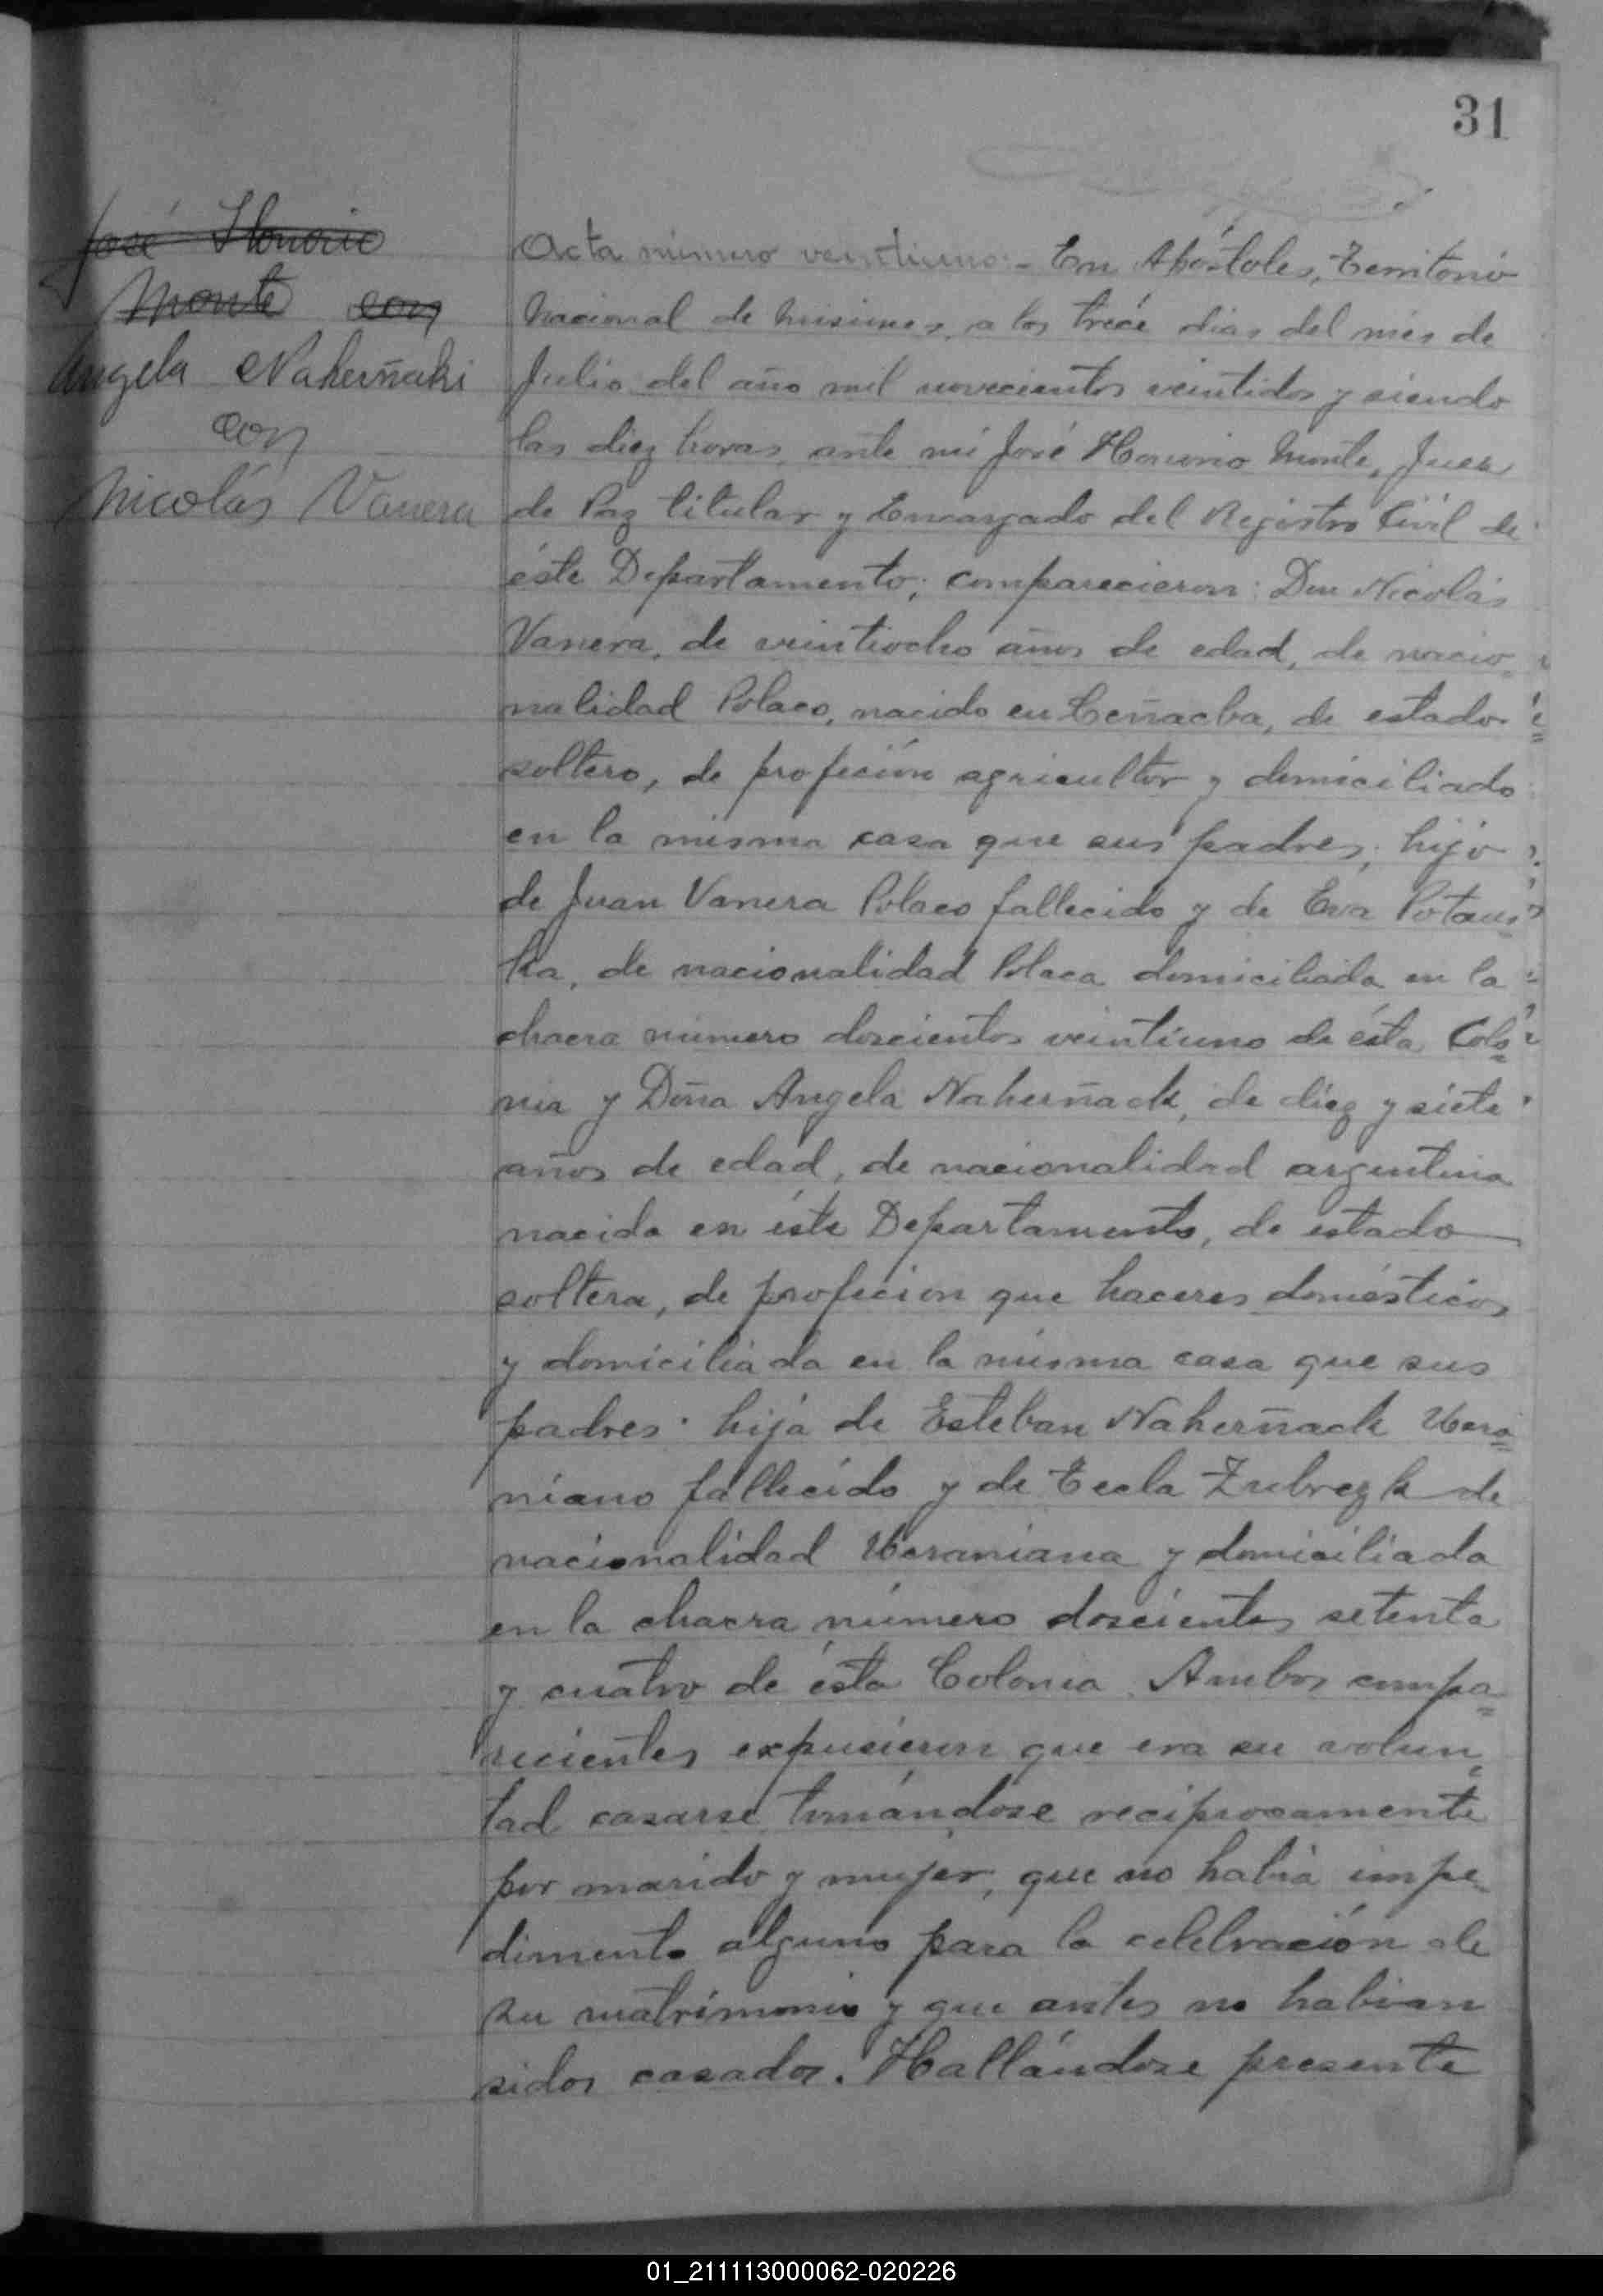 31
José Honorio
Monte con
Angela Naherñaki
con
Nicolás Vanera
Acta número veintiuno.- En Apóstoles, Territorio
Nacional de Misiones, a los trece dias del mes de
Julio del año mil novecientos veintidos y siendo
las diez horas, ante mi José Honorio Monte, Juez
de Paz titular y Encargado del Registro Civil de
éste Departamento; comparecieron: Don Nicolás
Vanera, de veintiocho años de edad, de nacio
nalidad Polaco, nacido en de estado
soltero, de profeción agricultor y domiciliado
en la misma casa que sus padres; hijo
de Juan Vanera Polaco fallecido y de Eva Potaus
ka, de nacionalidad Polaca domiciliada en la
chacra número doscientos veintiuno de ésta Colo
nia y Doña Angela Naherñack, de diez y siete
años de edad, de nacionalidad argentina
nacida en éste Departamento, de estado
soltera, de profecion que haceres domésticos
y domiciliada en la misma casa que sus
padres. hija de Esteban Naherñack Ucra
niano fallecido y de Tecla Zubrezk de
nacionalidad Ucraniana y domiciliada
en la chacra número doscientos setenta
y cuatro de ésta Colonia. Ambos compa
recientes expusieron que era su volun
tad casarse tomándose reciprocamente
por marido y mujer, que no habia impe
dimento alguno para la celebración de
su matrimonio y que antes no habian
sidos casados. Hallándose presente
01_211113000062-020226